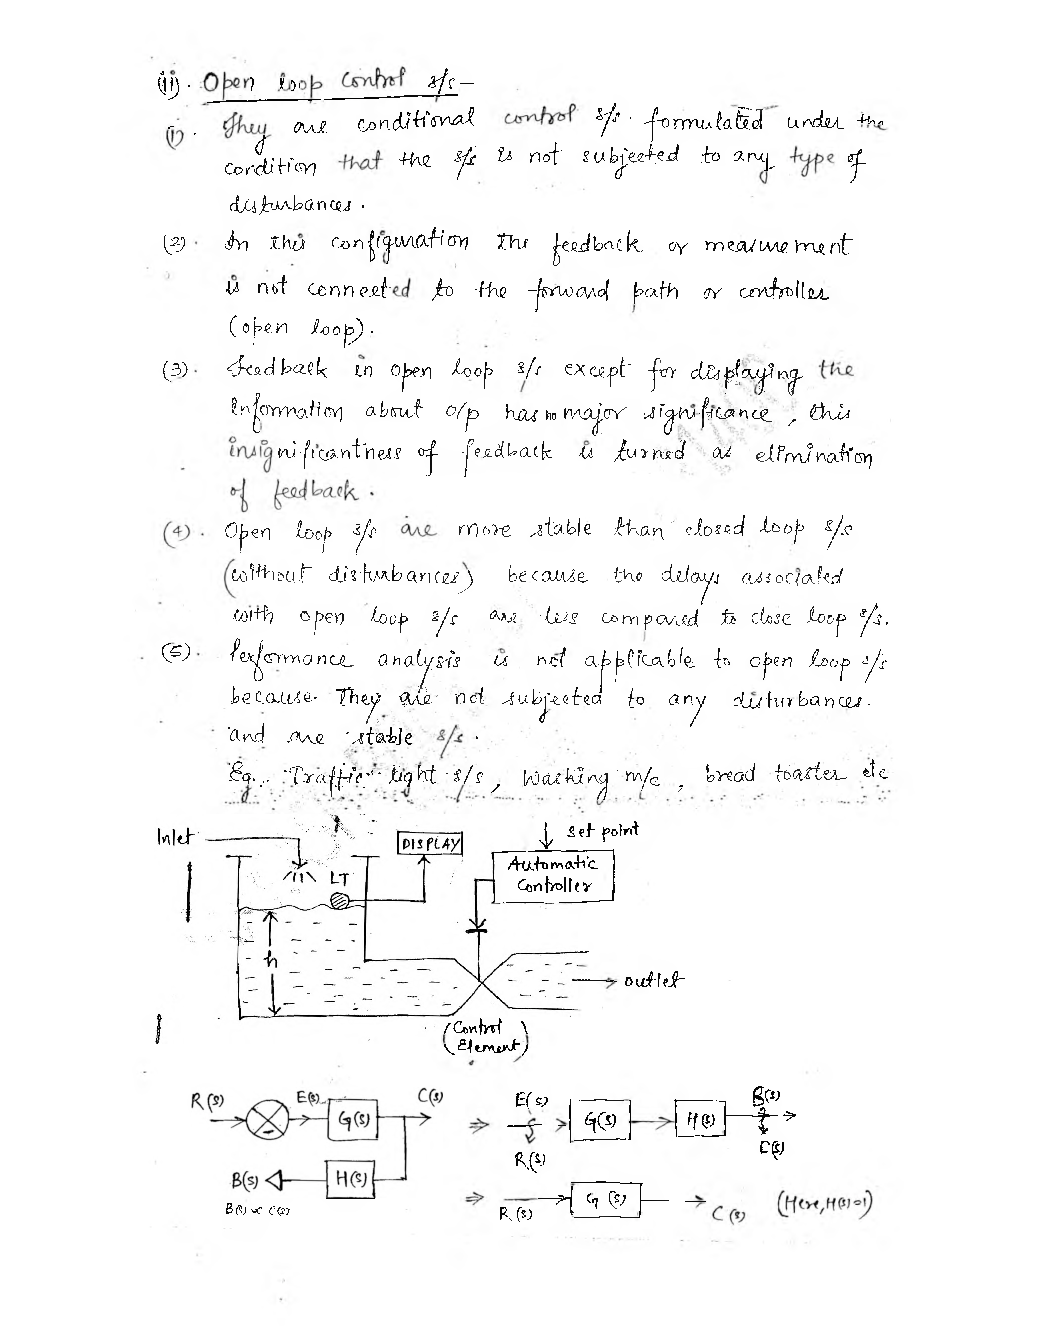 (ii). Open loop control s/s -
(1). They are conditional control s/s. formulated under the
condition that the s/s is not subjected to any type of
disturbances.
(2). In this configuration the feedback or measurement
is not connected to the forward path or controller
(open loop).
(3). Feedback in open loop s/s except for displaying the
information about o/p has no major significance, this
insignificantness of feedback is turned as elimination
of feedback.
(4). Open loop s/s are more stable than closed loop s/s
(without disturbances) because the delays associated
with open loop s/s are less compared to close loop s/s.
(5). Performance analysis is not applicable to open loop s/s
because. They are not subjected to any disturbances.
and are stable s/s.
Eg. Traffic light s/s, washing m/c, bread toaster etc
Inlet
DISPLAY
set point
Automatic
Controller
LT
h
outlet
(Control
Element)
R(s)
E(s)
G(s)
C(s)
B(s)
H(s)
B(s) ∝ C(s)
⇒
E(s)
R(s)
G(s)
H(s)
B(s)
C(s)
⇒
R(s)
G(s)
C(s)
(Here, H(s)=1)